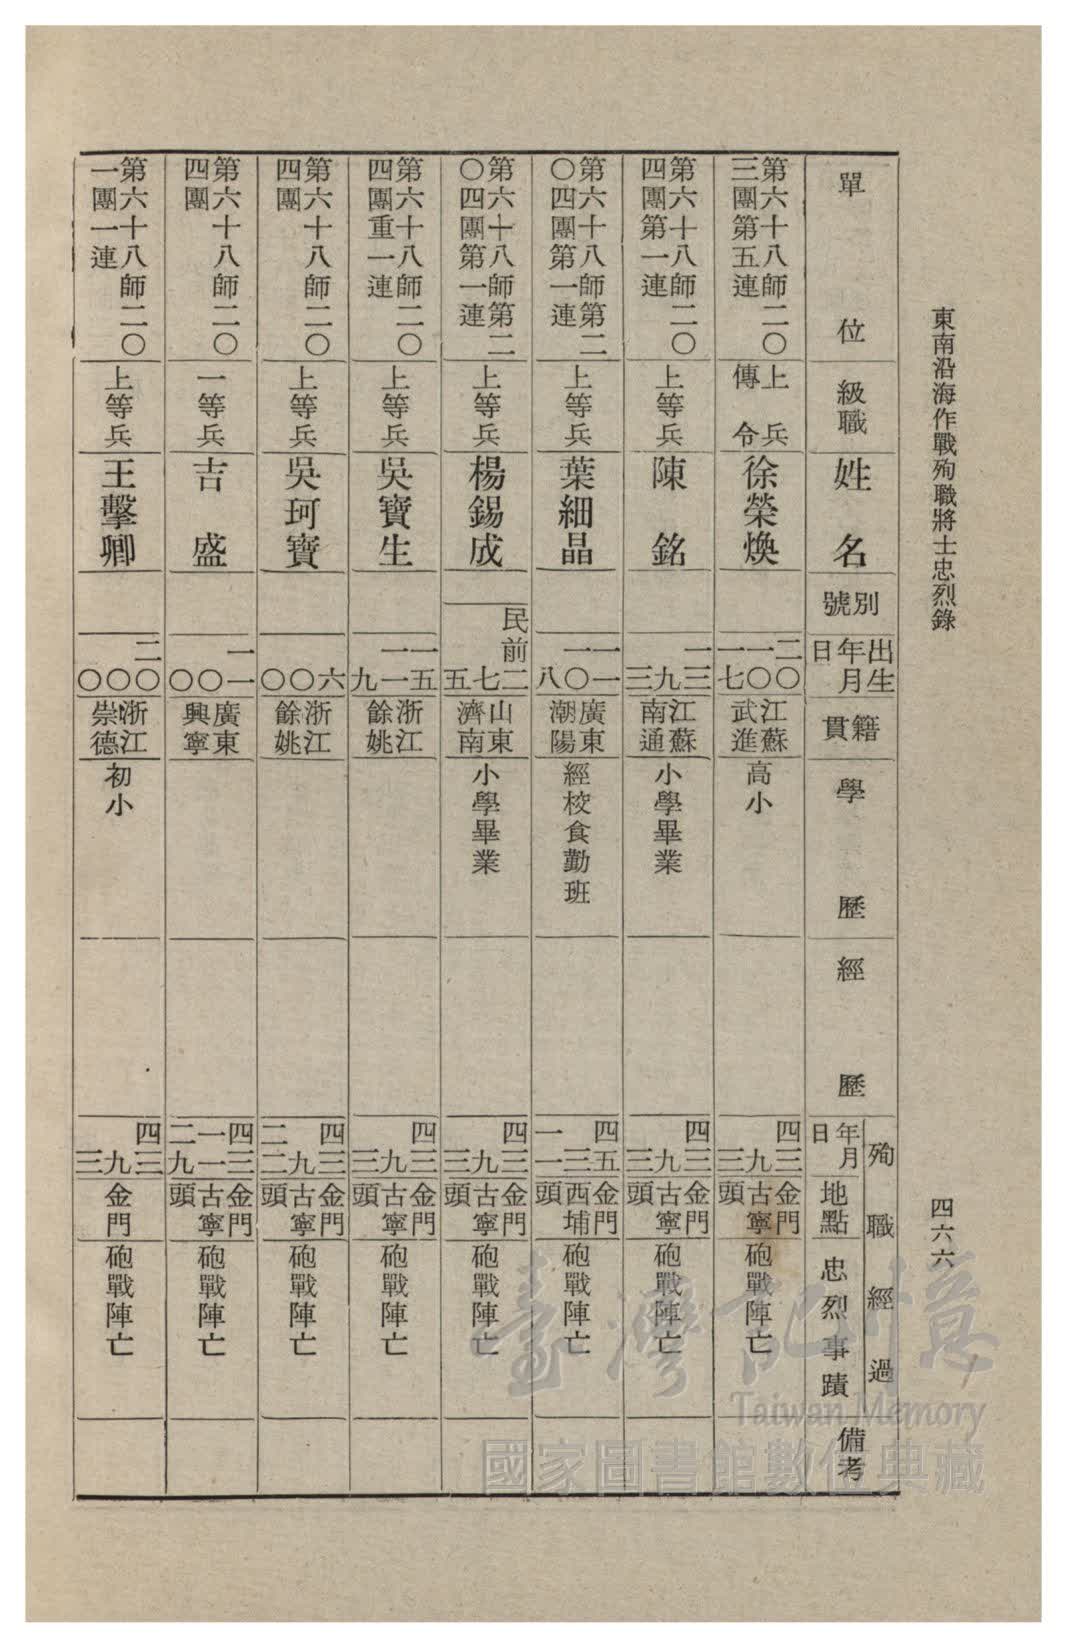 東南沿海作戰殉職將士忠烈錄
四六六
單位
級職
姓名
別號
出生
年月
日
籍貫
學歷
經歷
殉職經過
年月
日
地點
忠烈事蹟
備考
第六十八師二〇
三團第五連
上兵
傳令
徐榮煥
二〇
一〇
一七
江蘇
武進
高小
四三
九
三
金門
古寧
頭
砲戰陣亡
第六十八師二〇
四團第一連
上等兵
陳銘
一三
九
三
江蘇
南通
小學畢業
四三
九
三
金門
古寧
頭
砲戰陣亡
第六十八師第二
〇四團第一連
上等兵
葉細晶
一一
一〇
八
廣東
潮陽
經校食勤班
四五
三
一一
金門
西埔
頭
砲戰陣亡
第六十八師第二
〇四團第一連
上等兵
楊錫成
民前二
七
五
山東
濟南
小學畢業
四三
九
三
金門
古寧
頭
砲戰陣亡
第六十八師二〇
四團重一連
上等兵
吳寶生
一五
一一
九
浙江
餘姚
四三
九
三
金門
古寧
頭
砲戰陣亡
第六十八師二〇
四團
上等兵
吳珂寶
六
〇
〇
浙江
餘姚
四三
九
二二
金門
古寧
頭
砲戰陣亡
第六十八師二〇
四團
一等兵
吉盛
一一
〇
〇
廣東
興寧
四三
一一
二九
金門
古寧
頭
砲戰陣亡
第六十八師二〇
一團一連
上等兵
王擊卿
二〇
〇
〇
浙江
崇德
初小
四三
九
三
金門
砲戰陣亡
臺灣記憶
Taiwan Memory
國家圖書館數位典藏